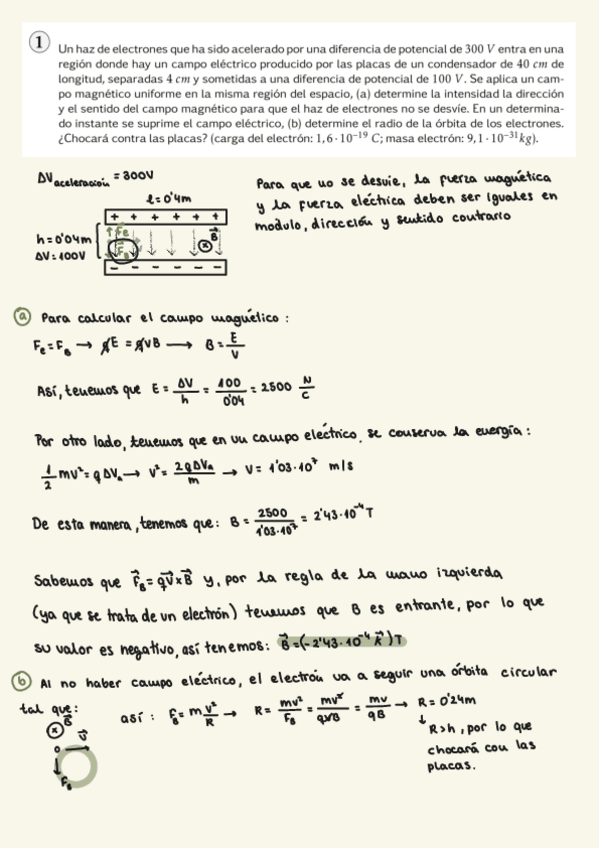 1
Un haz de electrones que ha sido acelerado por una diferencia de potencial de 300 V entra en una
región donde hay un campo eléctrico producido por las placas de un condensador de 40 cm de
longitud, separadas 4 cm y sometidas a una diferencia de potencial de 100 V. Se aplica un cam-
po magnético uniforme en la misma región del espacio, (a) determine la intensidad la dirección
y el sentido del campo magnético para que el haz de electrones no se desvíe. En un determina-
do instante se suprime el campo eléctrico, (b) determine el radio de la órbita de los electrones.
¿Chocará contra las placas? (carga del electrón: 1,6·10⁻¹⁹ C; masa electrón: 9,1·10⁻³¹kg).
ΔV aceleración = 300V
l = 0'4m
+ + + + + +
h = 0'04m
ΔV = 100V
Fe
F_B
B
- - - - - -
Para que no se desvíe, la fuerza magnética
y la fuerza eléctrica deben ser iguales en
modulo, dirección y sentido contrario
a Para calcular el campo magnético :
Fe = F_B → qE = qVB → B = E/V
Así, tenemos que E = ΔV/h = 100/0'04 = 2500 N/C
Por otro lado, tenemos que en un campo eléctrico, se conserva la energía :
1/2 mv² = q ΔVa → V² = 2qΔVa/m → V = 1'03·10⁷ m/s
De esta manera, tenemos que: B = 2500/1'03·10⁷ = 2'43·10⁻⁴ T
Sabemos que F_B = qV x B y, por la regla de la mano izquierda
(ya que se trata de un electrón) tenemos que B es entrante, por lo que
su valor es negativo, así tenemos: B = (-2'43·10⁻⁴ K) T
b Al no haber campo eléctrico, el electrón va a seguir una órbita circular
tal que:
así : F_B = m v²/R → R = mv²/F_B = mv²/qvB = mv/qB → R = 0'24m
B
V
F_B
R > h, por lo que
chocará con las
placas.